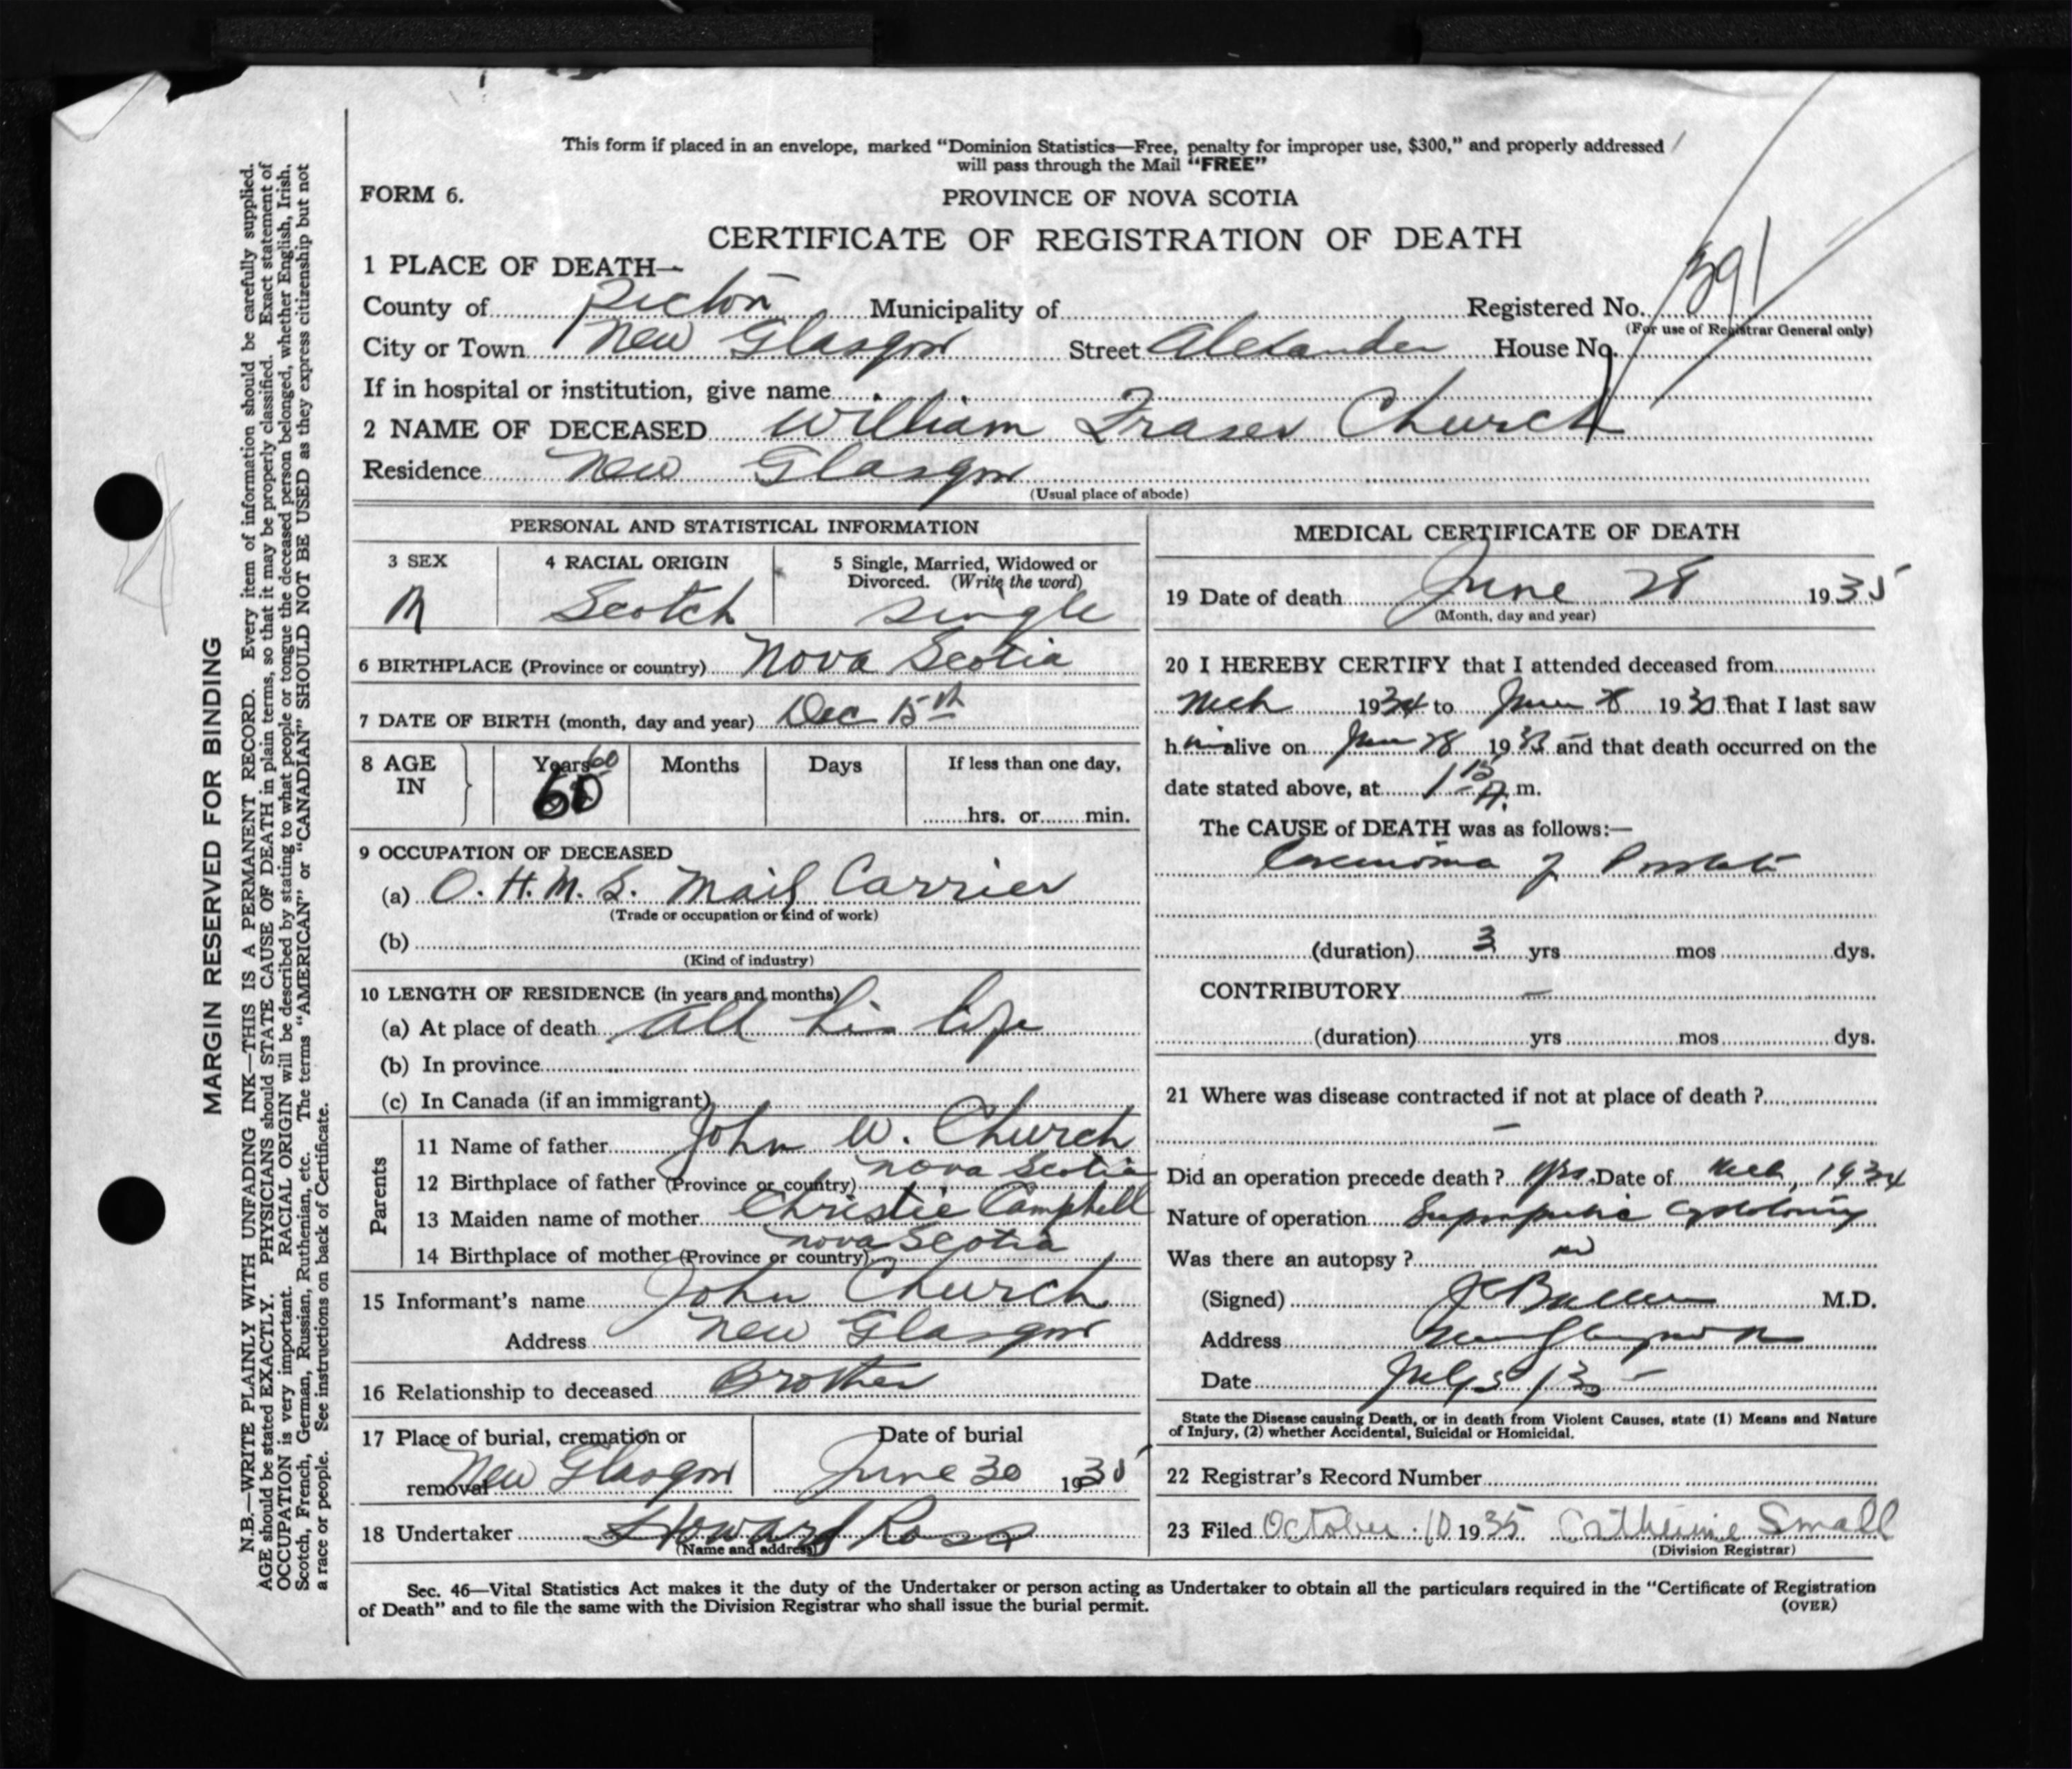 This form if placed in an envelope, marked "Dominion Statistics—Free, penalty for improper use, $300," and properly addressed
will pass through the Mail "FREE"
FORM 6.
PROVINCE OF NOVA SCOTIA
CERTIFICATE OF REGISTRATION OF DEATH
1 PLACE OF DEATH—
County of Pictou Municipality of Registered No. 391
(For use of Registrar General only)
City or Town New Glasgow Street Alexander House No.
If in hospital or institution, give name
2 NAME OF DECEASED William Fraser Church
Residence New Glasgow
(Usual place of abode)
PERSONAL AND STATISTICAL INFORMATION
3 SEX 4 RACIAL ORIGIN 5 Single, Married, Widowed or
Divorced. (Write the word)
M Scotch Single
6 BIRTHPLACE (Province or country) Nova Scotia
7 DATE OF BIRTH (month, day and year) Dec 15th
8 AGE IN Years 60 Months Days If less than one day,
60 hrs. or min.
9 OCCUPATION OF DECEASED
(a) O. H. M. S. Mail Carrier
(Trade or occupation or kind of work)
(b)
(Kind of industry)
10 LENGTH OF RESIDENCE (in years and months)
(a) At place of death all his life
(b) In province
(c) In Canada (if an immigrant)
Parents
11 Name of father John W. Church
12 Birthplace of father (Province or country) Nova Scotia
13 Maiden name of mother Christie Campbell
14 Birthplace of mother (Province or country) Nova Scotia
15 Informant's name John Church
Address New Glasgow
16 Relationship to deceased Brother
17 Place of burial, cremation or Date of burial
removal New Glasgow June 30 1935
18 Undertaker Howard Ross
(Name and address)
MEDICAL CERTIFICATE OF DEATH
19 Date of death June 28 1935
(Month, day and year)
20 I HEREBY CERTIFY that I attended deceased from
Mch 1934 to June 28 1935 that I last saw
him alive on June 28 1935 and that death occurred on the
date stated above, at 1 15 A. m.
The CAUSE of DEATH was as follows:—
Carcinoma of Prostate
(duration) 3 yrs mos dys.
CONTRIBUTORY —
(duration) yrs mos dys.
21 Where was disease contracted if not at place of death ?
—
Did an operation precede death ? Yes. Date of Mch, 1934
Nature of operation Suprapubic Cystotomy
Was there an autopsy ? no
(Signed) M.D.
Address New Glasgow N S
Date July 5 / 35
State the Disease causing Death, or in death from Violent Causes, state (1) Means and Nature
of Injury, (2) whether Accidental, Suicidal or Homicidal.
22 Registrar's Record Number
23 Filed October 10 1935 Catherine Small
(Division Registrar)
Sec. 46—Vital Statistics Act makes it the duty of the Undertaker or person acting as Undertaker to obtain all the particulars required in the "Certificate of Registration
of Death" and to file the same with the Division Registrar who shall issue the burial permit.
(OVER)
MARGIN RESERVED FOR BINDING
N.B.—WRITE PLAINLY WITH UNFADING INK—THIS IS A PERMANENT RECORD. Every item of information should be carefully supplied.
AGE should be stated EXACTLY. PHYSICIANS should STATE CAUSE OF DEATH in plain terms, so that it may be properly classified. Exact statement of
OCCUPATION is very important. RACIAL ORIGIN will be described by stating to what people or tongue the deceased person belonged, whether English, Irish,
Scotch, French, German, Russian, Ruthenian, etc. The terms "AMERICAN" or "CANADIAN" SHOULD NOT BE USED as they express citizenship but not
a race or people. See instructions on back of Certificate.